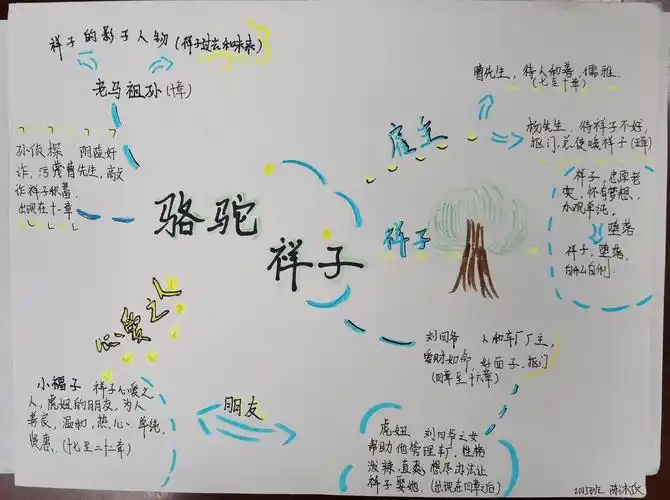 祥子的影子人物(祥子过去和未来)
老马祖孙(十章)
孙侦探 阴险奸
诈,污蔑曹先生,敲
诈祥子积蓄.
出现在十一章
骆驼
祥子
雇主
曹先生,待人和善,儒雅.
(七至十章)
杨先生.待祥子不好,
抠门,总使唤祥子(五章)
祥子
祥子,忠厚老
实,怀有梦想,
乐观单纯.
堕落
祥子,堕落,
自私自利.
心爱之人
小福子 祥子心爱之
人,虎妞的朋友,为人
善良,温和,热心、单纯,
贤惠.(十七至二十二章)
朋友
刘四爷 人和车厂厂主,
爱财如命,好面子,抠门
(四章至十六章)
虎妞 刘四爷之女
帮助他管理车厂,性格
泼辣.直爽,想尽办法让
祥子娶她.(出现在四章之后)